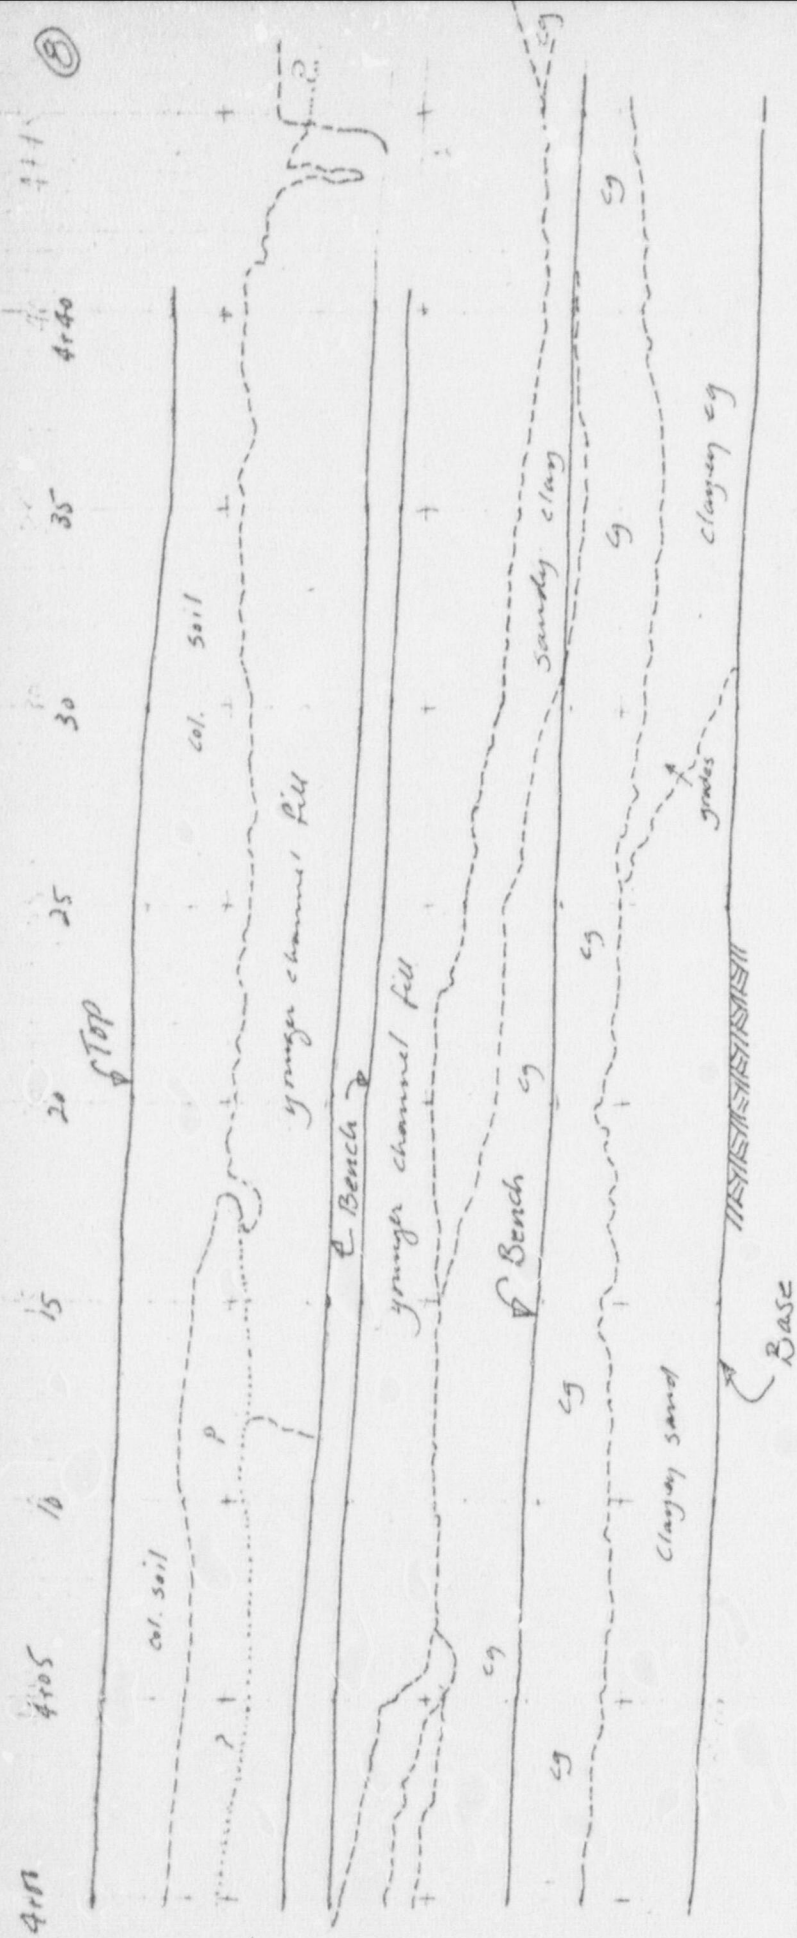 8
4+05
10
15
20
25
30
35
4+40
Top
col. soil
col. soil
?
?
younger channel fill
Bench
younger channel fill
sandy clay
Bench
cg
cg
cg
cg
cg
cg
cg
cg
clayey sand
grades
clayey cg
Base